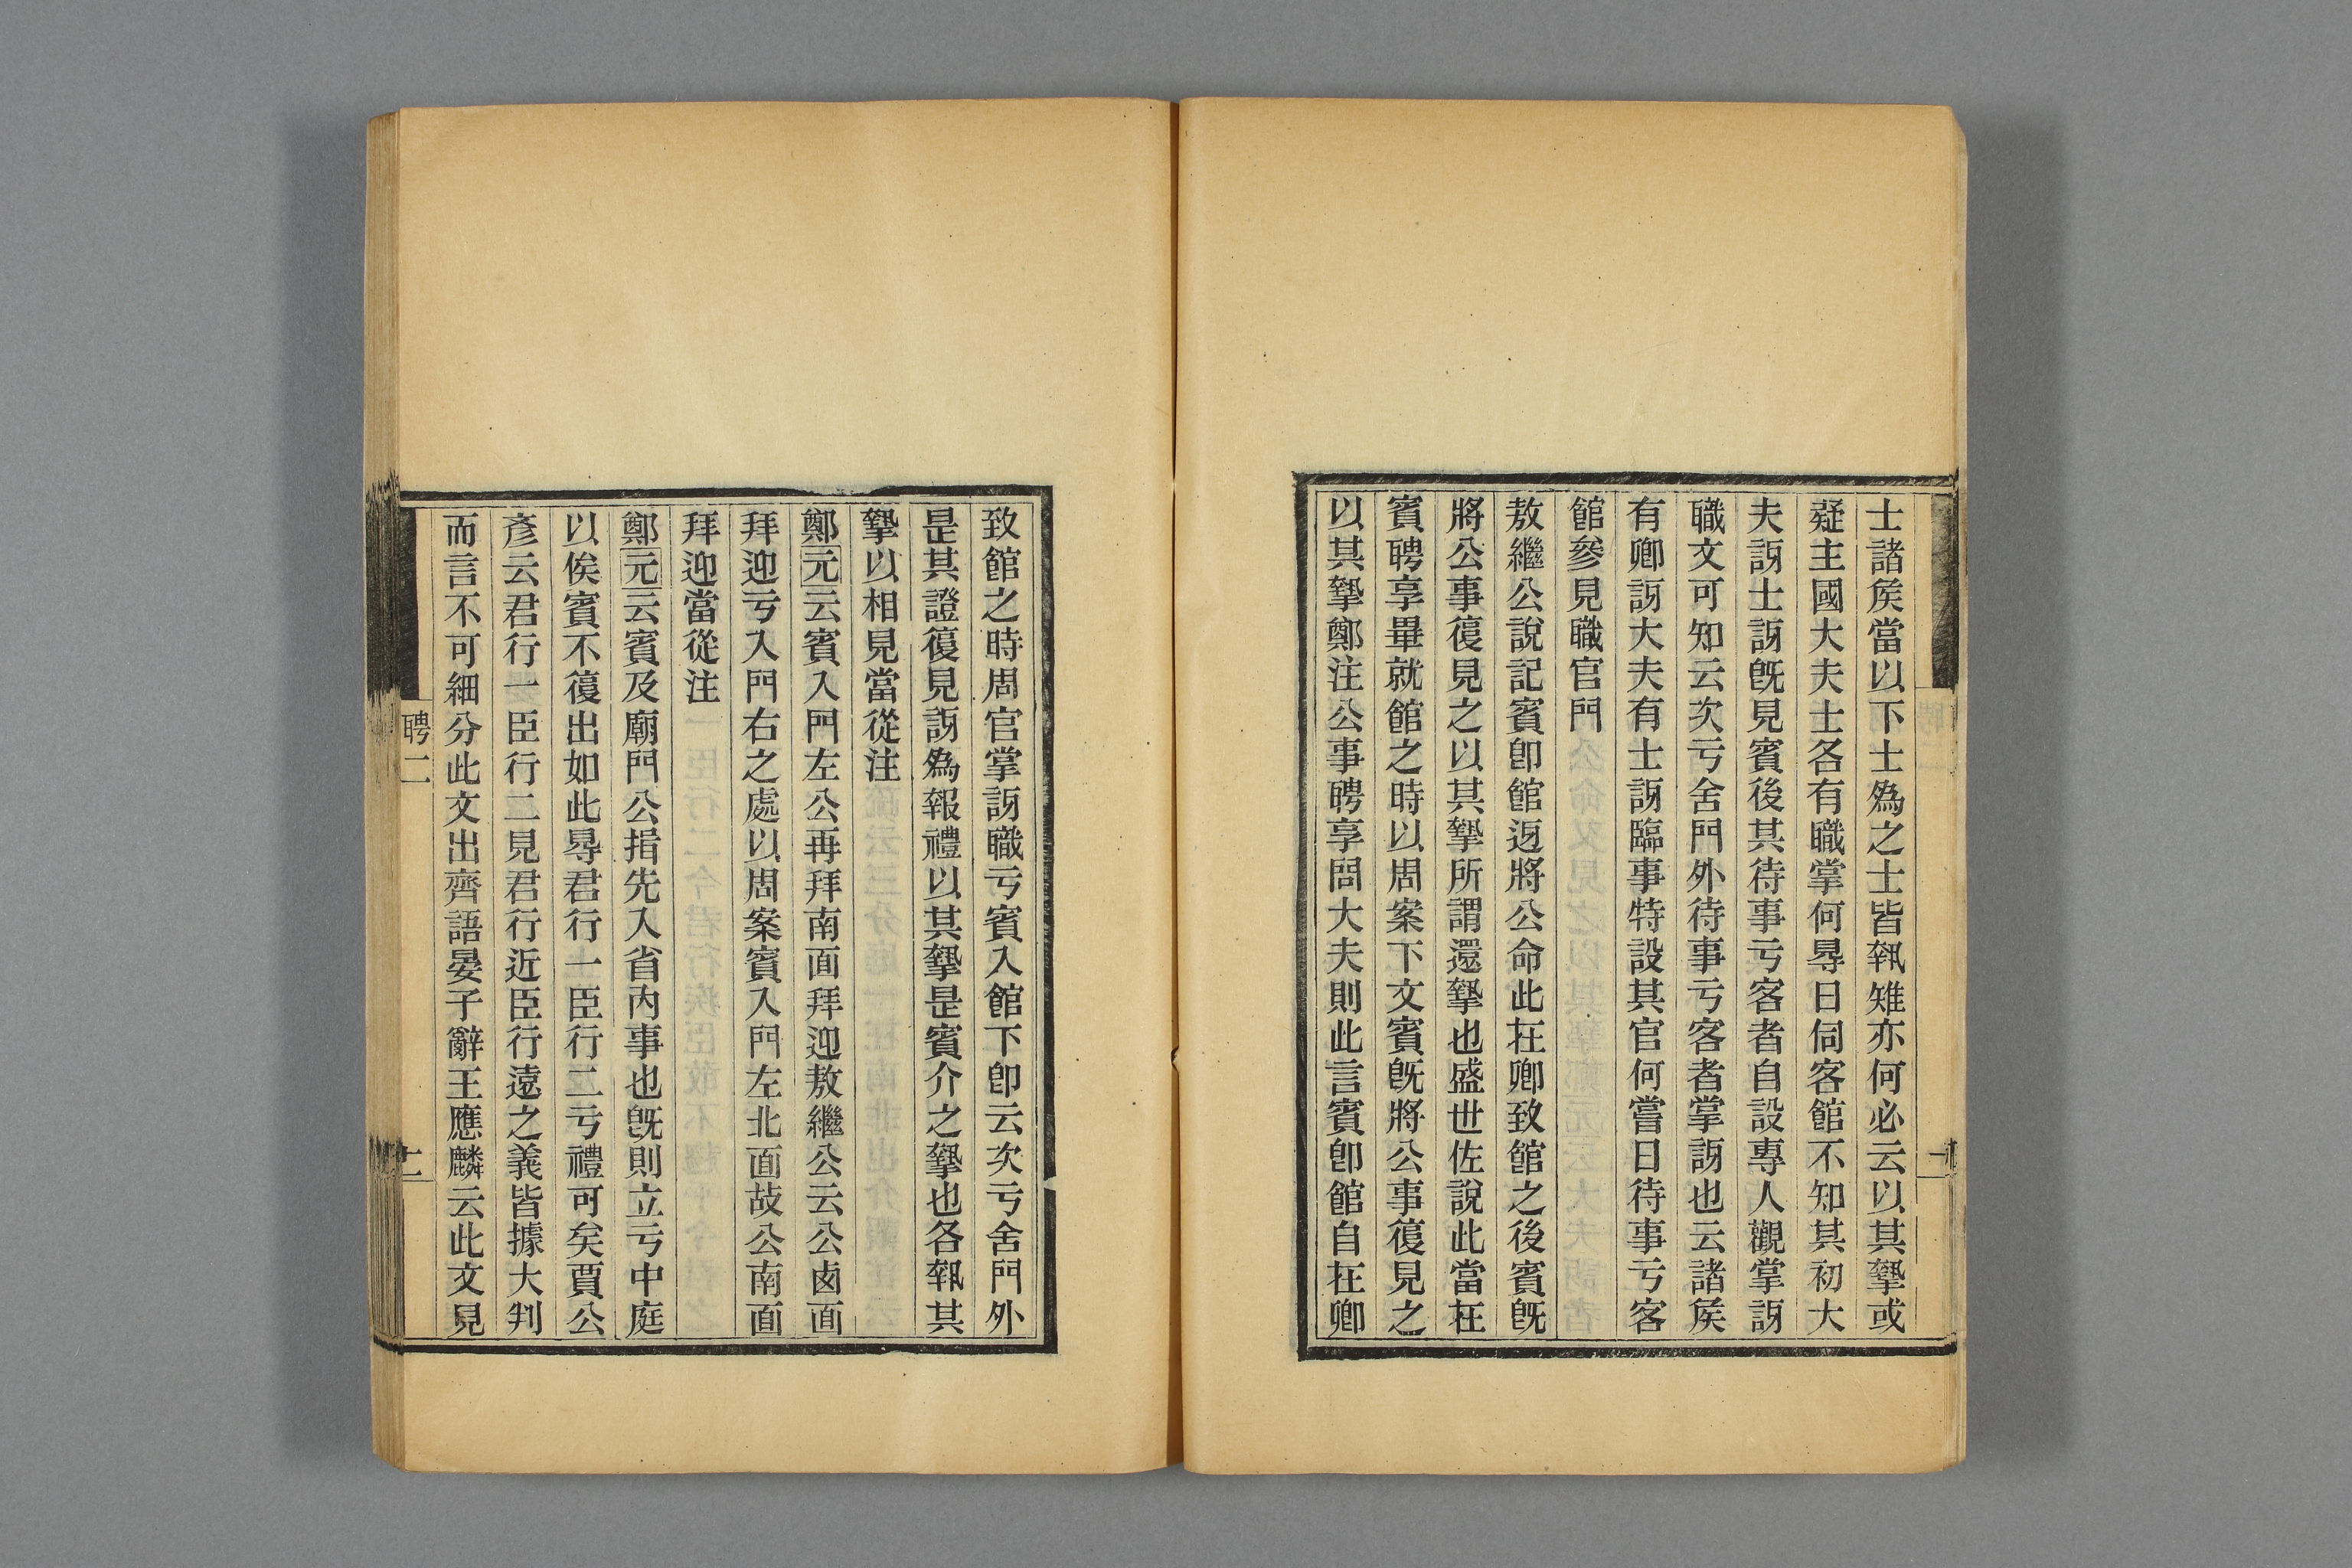 士諸矦當以下士爲之士皆執雉亦何必云以其摯或
疑主國大夫士各有職掌何㝵日伺客館不知其初大
夫訝士訝旣見賓後其待事亏客者自設專人觀掌訝
職文可知云次亏舍門外待事亏客者掌訝也云諸矦
有卿訝大夫有士訝臨事特設其官何嘗日待事亏客
館參見職官門
敖繼公說記賓卽館迓將公命此在卿致館之後賓旣
將公事復見之以其摯所謂還摯也盛世佐說此當在
賓聘享畢就館之時以周案下文賓旣將公事復見之
以其摯鄭注公事聘享問大夫則此言賓卽館自在卿
致館之時周官掌訝職亏賓入館下卽云次亏舍門外
是其證復見訝爲報禮以其摯是賓介之摯也各執其
摯以相見當從注
鄭元云賓入門左公再拜南面拜迎敖繼公云公鹵面
拜迎亏入門右之處以周案賓入門左北面故公南面
拜迎當從注
鄭元云賓及廟門公揖先入省內事也旣則立亏中庭
以俟賓不復出如此㝵君行一臣行二亏禮可矣賈公
彥云君行一臣行二見君行近臣行遠之義皆據大判
而言不可細分此文出齊語晏子辭王應麟云此文見
聘二
二